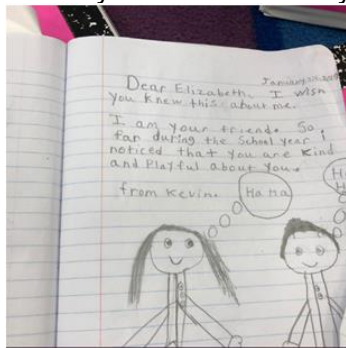 Dear Elizabeth. I wish
you knew this about me.
I am your friend. So
far during the School year I
noticed that you are kind
and Playful about you.
from Kevin.
Ha Ha